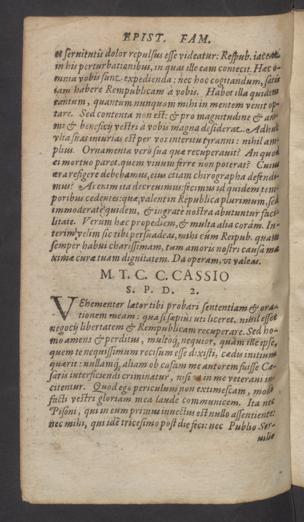 EPIST. FAM.
et seruitutis dolor repulsus esse videatur: Respub. iaceat
in his perturbationibus, in quas ille eam coniecit. Hæc o-
mnia vobis sunt expedienda: nec hoc cogitandum, satis
iam habere Rempublicam à vobis. Habet illa quidem
tantum, quantum nunquam mihi in mentem venit op-
tare. Sed contenta non est: & pro magnitudine & ani-
mi & beneficij vestri à vobis magna desiderat. Adhuc
vlta suas iniurias est per vos interitu tyranni: nihil am-
plius. Ornamenta verò sua quæ recuperauit? An quod
ei mortuo paret, quem viuum ferre non poterat? Cuius
æra refigere debebamus, eius etiam chirographa defendi-
mus? At enim ita decreuimus: fecimus id quidem tem-
poribus cedentes: quæ valent in Republica plurimum, sed
immoderatè quidem, & ingratè nostra abutuntur faci-
litate. Verum hæc propediem, & multa alia coram. In-
terim velim sic tibi persuadeas, mihi cùm Reipub. quam
semper habui charissimam, tum amoris nostri causa ma-
ximæ curæ tuam dignitatem. Da operam, vt valeas.
M. T. C. C. CASSIO
S. P. D. 2.
VEhementer lætor tibi probari sententiam & ora-
tionem meam: qua si sæpius vti liceret, nihil esset
negocij libertatem & Rempublicam recuperare. Sed ho-
mo amens & perditus, multóq; nequior, quàm ille ipse,
quem tu nequissimum occisum esse dixisti, cædis initium
quærit: nullamq; aliam ob causam me autorem fuisse Cæ-
saris interficiendi criminatur, nisi vt in me veterani in-
citentur. Quod ego periculum non extimescam, modò
facti vestri gloriam mea laude communicem. Ita nec
Pisoni, qui in eum primus inuectus est nullo assentiente:
nec mihi, qui idē tricesimo post die feci: nec Publio Ser-
uilio